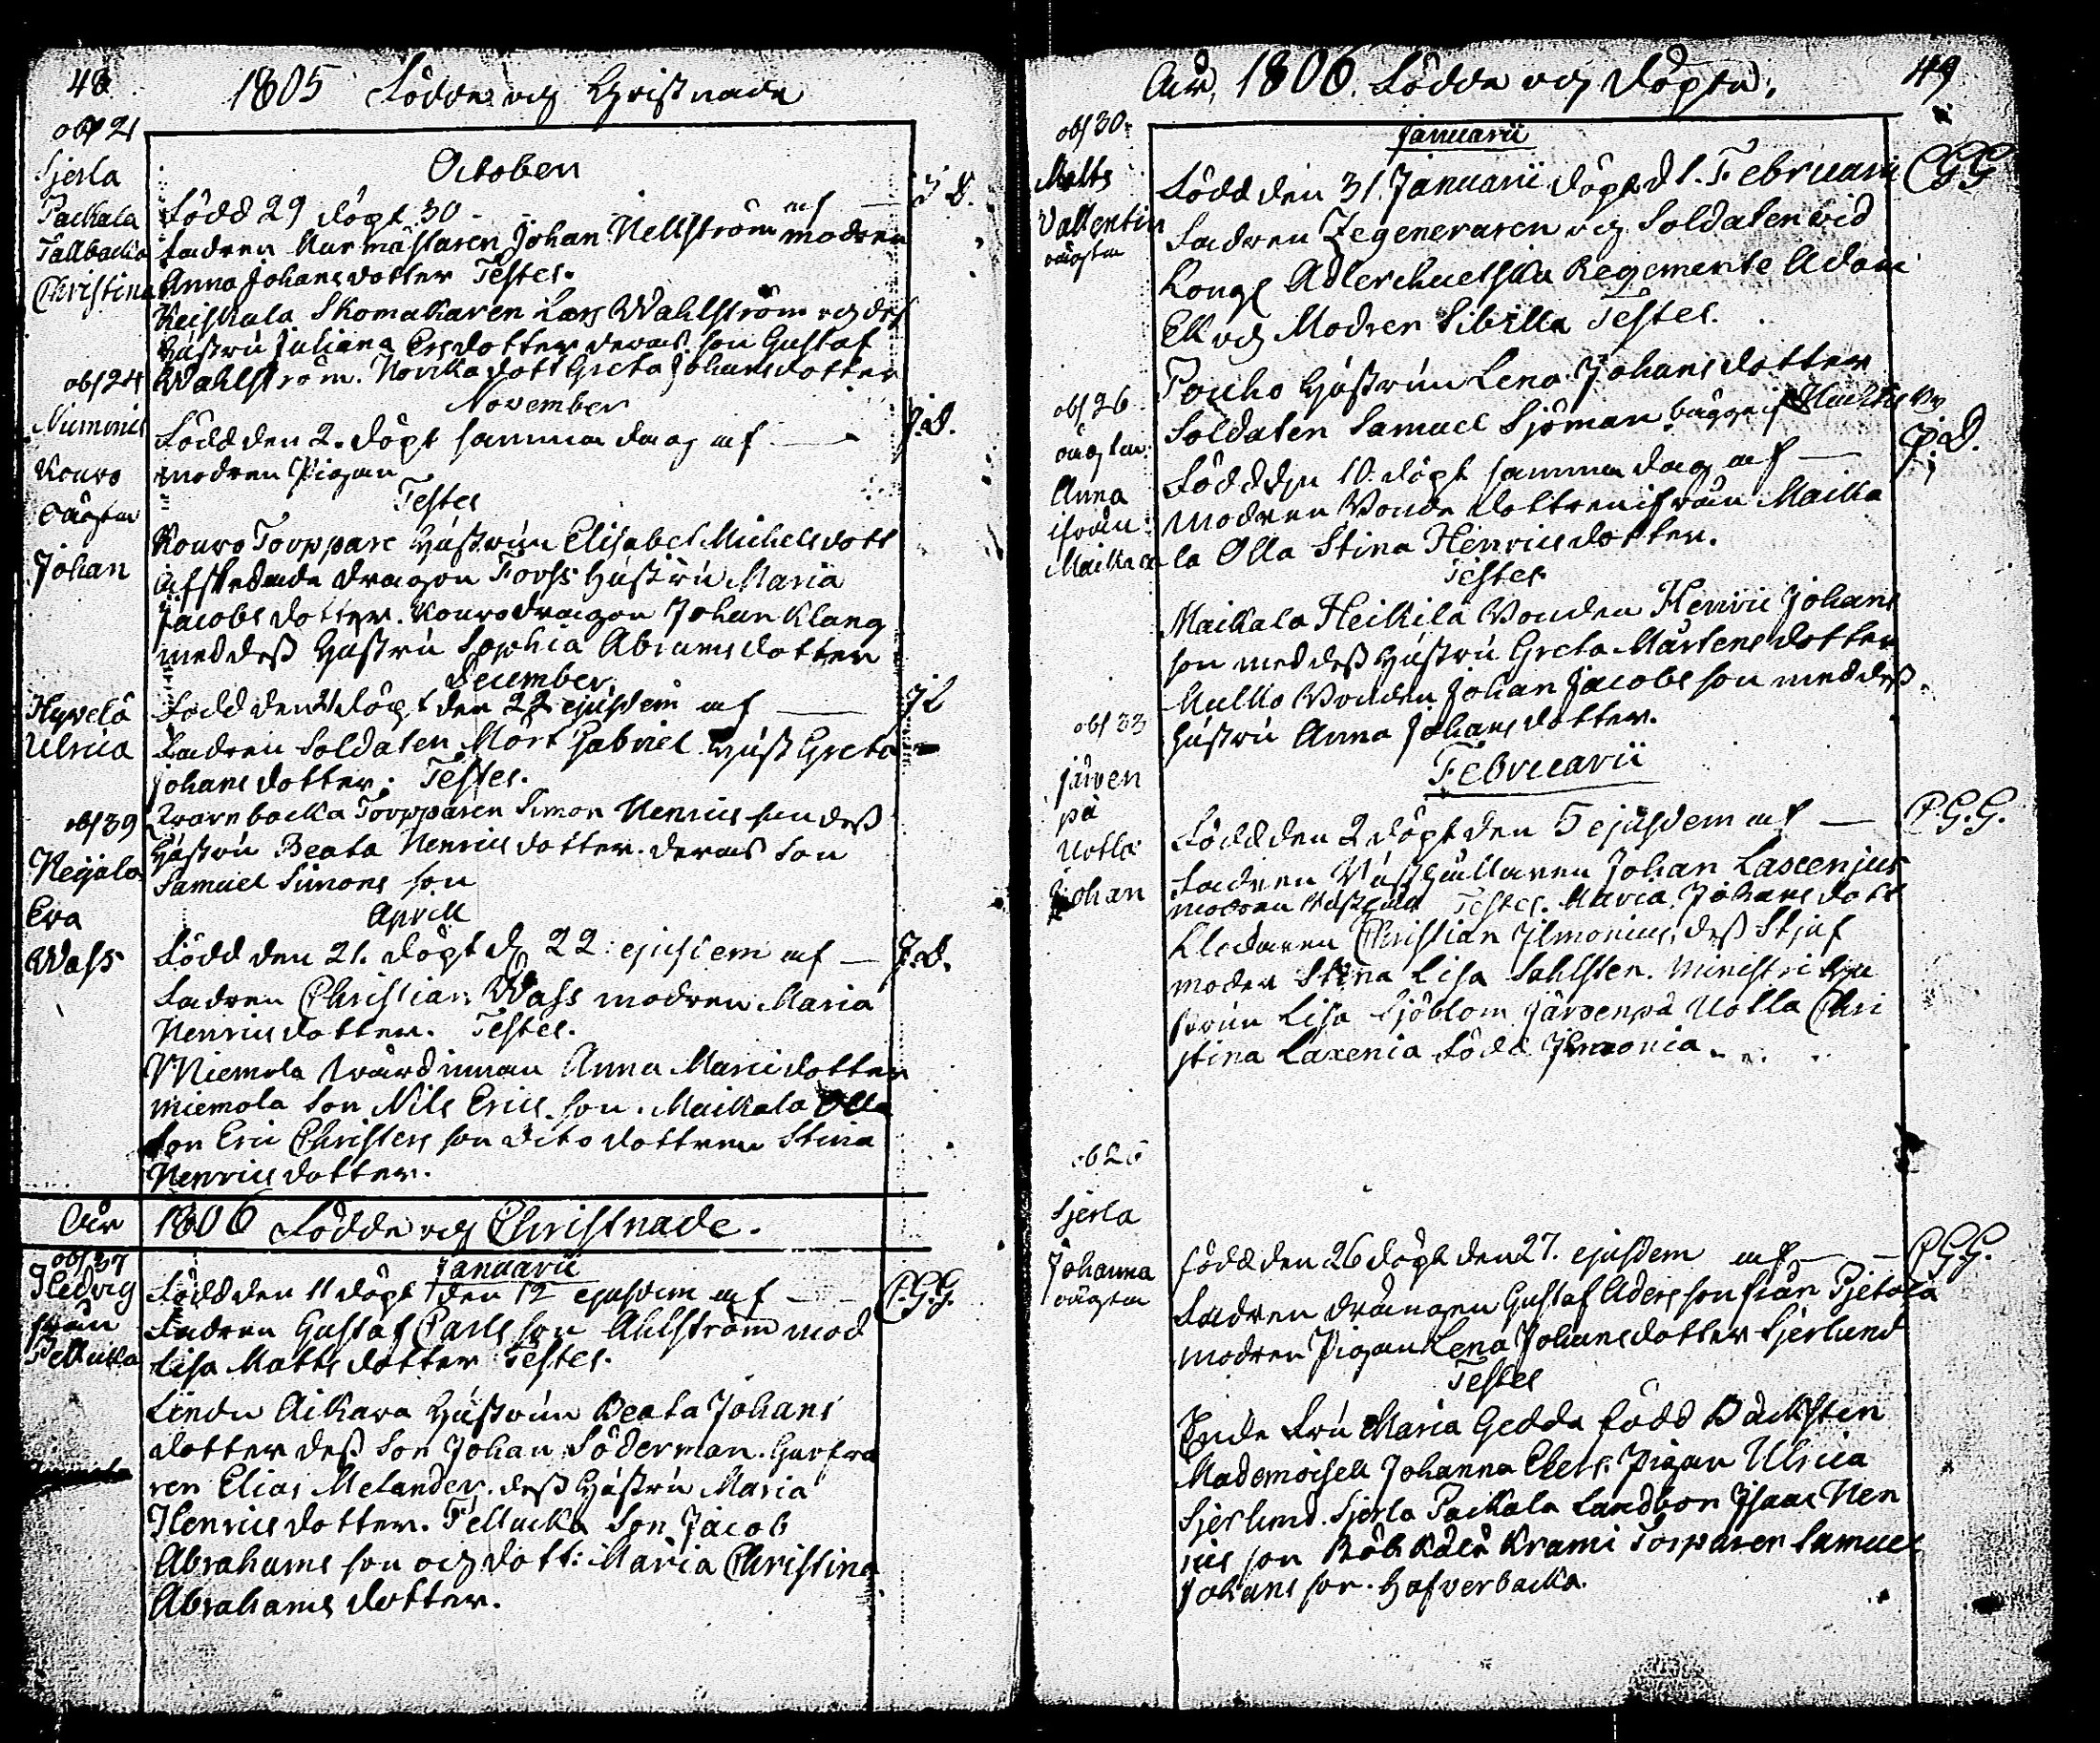 48
1805 Födde och Christnade
obs 21
Sjerla
Paikala
Tallbacka
Christina
October
Född 29 döpt 30 af — J. D.
Fadren Murmästaren Johan Hellström modren
Anna Johansdotter Testes.
Keiskala Skomakaren Lars Wahlström och dess
Hustru Juliana Ersdotter deras son Gustaf
Wahlström. Novika dott Greta Johansdotter
obs 24
Nummis
Kouro
oägta
Johan
November
Född den 2. döpt samma dag af — J. D.
modren Pigan
Testes
Kouro Torppare Hustrun Elisabet Michelsdott
afskedade dragon Forss Hustru Maria
Jacobs dotter. Kouro dragon Johan Klang
med dess Hustru Sophia Abrams dotter
Hyvelä
Ulrica
December
Född den 21 döpt den 22 ejusdem af —
Fadren Soldaten Mört Gabriel Hust Greta
Johans dotter. Testes.
Torppare Simon Henrics son dess
Hustru Beata Henrics dotter. deras Son
Samuel Simons son
obs 39
Heijala
Eva
Wass
Aprill
Född den 21. döpt d 22 ejusdem af — J. D.
Fadren Christian Wass modren Maria
Henrics dotter. Testes.
Niemola wärdinnan Anna Maria dotter
Miemola Son Nils Erics son. Maikala Olla
Son Eric Christers son dito dottren Stina
Henrics dotter.
Åhr 1806 Födde och Christnade.
obs 37
Hedvig
från
Pelluka
Januarii
Född den 11 döpt den 12 ejusdem af — C. G. G.
Fadren Gustaf Carls son Ahlström mod
Lisa Matts dotter Testes.
Hustrun Beata Johans
dotter dess Son Johan Söderman. Garfva
ren Elias Melander. dess Hustru Maria
Henrics dotter. Pellucka Son Jacob
Abrahams son och dott: Maria Christina
Abrahams dotter.
Åhr, 1806. Födde och Döpta.
49
obs 30
Matts
Vallentin
oägta
Januarii
Född den 31. Januarii döpt d 1. Februarii C G G
Fadren Zegeneraren och Soldaten vid
Kongl Adlercreutzska Regemente Adam
Ek och Modren Sibilla Testes.
Poucho Hustrun Lena Johans dotter
Soldaten Samuel Sjöman
obs 26
oägta
Anna
ifrån
Maikala
Född den 10. döpt samma dag af — J. D.
Modren Bonde dottren ifrån Maika
la Olla Stina Henrics dotter.
Testes
Maikala Heikilä Bonden Henric Johans
son med dess Hustru Greta Mårtens dotter
Bonden Johan Jacobs son med dess
Hustru Anna Johans dotter.
obs 33
Järven
pä
Uotla
Johan
Februarii
Född den 2 döpt den 5 ejusdem af — C. G. G.
Fadren Johan Laxenius
modren Testes. Maria Johans dott
Klockaren Christian Ilmonius, dess Stjuf
moder Stina Lisa Sahlsten. Ministri
frun Lisa Sjöblom Järvenpä Uotla Chri
stina Laxenia Född Ilmonia.
ob 25
Sjerla
Johanna
oägta
Född den 26 döpt den 27. ejusdem af — C G G.
Fadren drängen Gustaf Aders son från Pjetola
modren Pigan Lena Johans dotter Sjerlund
Testes
Enke Fru Maria Gedda Född Bäcksten
Mademoisell Johanna Pigan Ulrica
Sjerlund. Sjerla Paikala Landbon Isaac Hen
rics son Krami Torparen Samuel
Johans son. Hafverbacka.